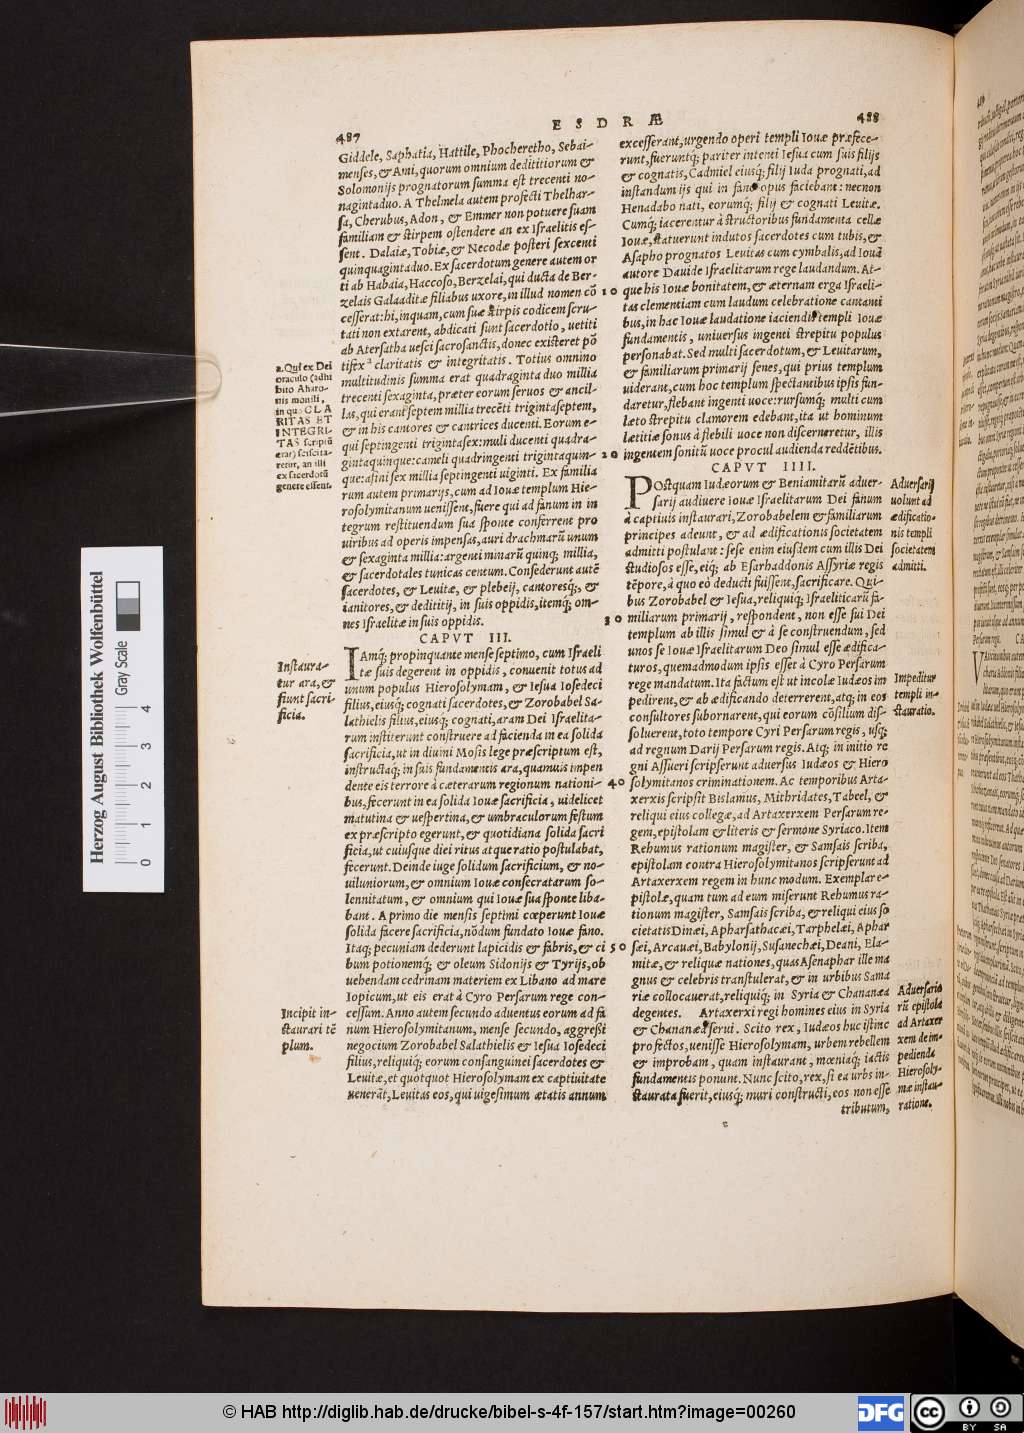 487
E S D R Æ
488
Giddele, Saphatia, Hattile, Phocheretho, Sebai-
menſes, & Ami, quorum omnium dedititiorum &
Solomonijs prognatorum ſumma eſt trecenti no-
nagintaduo. A Thelmela autem profecti Thelhar-
ſa, Cherubus, Adon, & Emmer non potuere ſuam
familiam & ſtirpem oſtendere an ex Iſraelitis eſ-
ſent. Dalaiæ, Tobiæ, & Necodæ poſteri ſexcenti
quinquagintaduo. Ex ſacerdotum genere autem or
ti ab Habaia, Haccoſo, Berzelai, qui ducta de Ber-
zelais Galaaditæ filiabus uxore, in illud nomen cō
ceſſerat: hi, inquam, cum ſuæ ſtirpis codicem ſcru-
tati non extarent, abdicati ſunt ſacerdotio, uetiti
ab Aterſatha ueſci ſacroſanctis, donec exiſteret pō
tifex ª claritatis & integritatis. Totius omnino
multitudinis ſumma erat quadraginta duo millia
trecenti ſexaginta, præter eorum ſeruos & ancil-
las, qui erant ſeptem millia trecēti trigintaſeptem,
& in his cantores & cantrices ducenti. Eorum e-
qui ſeptingenti trigintaſex: muli ducenti quadra-
gintaquinque: cameli quadringenti trigintaquin-
que: aſini ſex millia ſeptingenti uiginti. Ex familia
rum autem primarijs, cum ad Iouæ templum Hie-
roſolymitanum ueniſſent, fuere qui ad fanum in in
tegrum reſtituendum ſua ſponte conferrent pro
uiribus ad operis impenſas, auri drachmarū unum
& ſexaginta millia: argenti minarū quinq; millia,
& ſacerdotales tunicas centum. Conſederunt autē
ſacerdotes, & Leuitæ, & plebeij, cantoresq́;, &
ianitores, & dedititij, in ſuis oppidis, itemq́; om-
nes Iſraelitæ in ſuis oppidis.
CAPVT III.
IAmq́; propinquante menſe ſeptimo, cum Iſraeli
tæ ſuis degerent in oppidis, conuenit totus ad
unum populus Hieroſolymam, & Ieſua Ioſedeci
filius, eiusq́; cognati ſacerdotes, & Zorobabel Sa-
lathielis filius, eiusq́; cognati, aram Dei Iſraelita-
rum inſtiterunt conſtruere ad facienda in ea ſolida
ſacrificia, ut in diuini Moſis lege præſcriptum eſt,
inſtructaq́; in ſuis fundamentis ara, quamuis impen
dente eis terrore à cæterarum regionum nationi-
bus, fecerunt in ea ſolida Iouæ ſacrificia, uidelicet
matutina & ueſpertina, & umbraculorum feſtum
ex præſcripto egerunt, & quotidiana ſolida ſacri
ficia, ut cuiuſque diei ritus atque ratio poſtulabat,
fecerunt. Deinde iuge ſolidum ſacrificium, & no-
uiluniorum, & omnium Iouæ conſecratarum ſo-
lennitatum, & omnium qui Iouæ ſua ſponte liba-
bant. A primo die menſis ſeptimi cœperunt Iouæ
ſolida facere ſacrificia, nōdum fundato Iouæ fano.
Itaq; pecuniam dederunt lapicidis & fabris, & ci
bum potionemq́; & oleum Sidonijs & Tyrijs, ob
uehendam cedrinam materiem ex Libano ad mare
Iopicum, ut eis erat à Cyro Perſarum rege con-
ceſſum. Anno autem ſecundo aduentus eorum ad fa
num Hieroſolymitanum, menſe ſecundo, aggreſſi
negocium Zorobabel Salathielis & Ieſua Ioſedeci
filius, reliquiq́; eorum conſanguinei ſacerdotes &
Leuitæ, et quotquot Hieroſolymam ex captiuitate
uenerāt, Leuitas eos, qui uigeſimum ætatis annum
a. Qui ex Dei
oraculo (adhi
bito Aharo-
nis monili,
in quo CLA
RITAS ET
INTEGRI-
TAS ſcriptū
erat) ſciſcita-
retur, an illi
ex ſacerdotū
genere eſſent.
Inſtaura-
tur ara, &
fiunt ſacri-
ficia.
Incipit in-
ſtaurari tē
plum.
10
20
30
40
50
exceſſerant, urgendo operi templi Iouæ præfece-
runt, fueruntq́; pariter intenti Ieſua cum ſuis filijs
& cognatis, Cadmiel eiusq́; filij Iuda prognati, ad
inſtandum ijs qui in fano opus faciebant: necnon
Henadabo nati, eorumq́; filij & cognati Leuitæ.
Cumq́; iacerentur à ſtructoribus fundamenta cellæ
Iouæ, ſtatuerunt indutos ſacerdotes cum tubis, &
Aſapho prognatos Leuitas cum cymbalis, ad Iouā
autore Dauide Iſraelitarum rege laudandum. At-
que his Iouæ bonitatem, & æternam erga Iſraeli-
tas clementiam cum laudum celebratione cantanti
bus, in hac Iouæ laudatione iaciendis templi Iouæ
fundamentis, uniuerſus ingenti ſtrepitu populus
perſonabat. Sed multi ſacerdotum, & Leuitarum,
& familiarum primarij ſenes, qui prius templum
uiderant, cum hoc templum ſpectantibus ipſis fun-
daretur, flebant ingenti uoce: rurſumq́; multi cum
læto ſtrepitu clamorem edebant, ita ut hominum
lætitiæ ſonus à flebili uoce non diſcerneretur, illis
ingentem ſonitū uoce procul audienda reddētibus.
CAPVT IIII.
POſtquam Iudæorum & Beniamitarū aduer-
ſarij audiuere Iouæ Iſraelitarum Dei fanum
à captiuis inſtaurari, Zorobabelem & familiarum
principes adeunt, & ad ædificationis ſocietatem
admitti poſtulant: ſeſe enim eiuſdem cum illis Dei
ſtudioſos eſſe, eiq́; ab Eſarhaddonis Aſſyriæ regis
tēpore, à quo eò deducti fuiſſent, ſacrificare. Qui-
bus Zorobabel & Ieſua, reliquiq; Iſraeliticarū fa-
miliarum primarij, reſpondent, non eſſe ſui Dei
templum ab illis ſimul & à ſe conſtruendum, ſed
unos ſe Iouæ Iſraelitarum Deo ſimul eſſe ædifica-
turos, quemadmodum ipſis eſſet à Cyro Perſarum
rege mandatum. Ita factum eſt ut incolæ Iudæos im
pedirent, & ab ædificando deterrerent, atq; in eos
conſultores ſubornarent, qui eorum cōſilium diſ-
ſoluerent, toto tempore Cyri Perſarum regis, uſq;
ad regnum Darij Perſarum regis. Atq; in initio re
gni Aſſueri ſcripſerunt aduerſus Iudæos & Hiero
ſolymitanos criminationem. Ac temporibus Arta-
xerxis ſcripſit Biſlamus, Mithridates, Tabeel, &
reliqui eius collegæ, ad Artaxerxem Perſarum re-
gem, epiſtolam & literis & ſermone Syriaco. Item
Rehumus rationum magiſter, & Samſais ſcriba,
epiſtolam contra Hieroſolymitanos ſcripſerunt ad
Artaxerxem regem in hunc modum. Exemplar e-
piſtolæ, quam tum ad eum miſerunt Rehumus ra-
tionum magiſter, Samſais ſcriba, & reliqui eius ſo
cietatis Dinæi, Apharſathacæi, Tarphelæi, Aphar
ſæi, Arcauæi, Babylonij, Suſanechæi, Deani, Ela-
mitæ, & reliquæ nationes, quas Aſenaphar ille ma
gnus & celebris tranſtulerat, & in urbibus Sama
riæ collocauerat, reliquiq́; in Syria & Chananæa
degentes. Artaxerxi regi homines eius in Syria
& Chananæa ſerui. Scito rex, Iudæos huc iſtinc
profectos, ueniſſe Hieroſolymam, urbem rebellem
& improbam, quam inſtaurant, mœniaq́; iactis
fundamentis ponunt. Nunc ſcito, rex, ſi ea urbs in-
ſtaurata fuerit, eiusq́; muri conſtructi, eos non eſſe
tributum,
c
Aduerſarij
uolunt ad
ædificatio-
nis templi
ſocietatem
admitti.
Impeditur
templi in-
ſtauratio.
Aduerſario
rū epiſtola
ad Artaxer
xem de im-
pedienda
Hieroſoly-
mæ inſtau-
ratione.
Herzog August Bibliothek Wolfenbüttel
Gray Scale
0 1 2 3 4
© HAB http://diglib.hab.de/drucke/bibel-s-4f-157/start.htm?image=00260
DFG
cc
BY SA